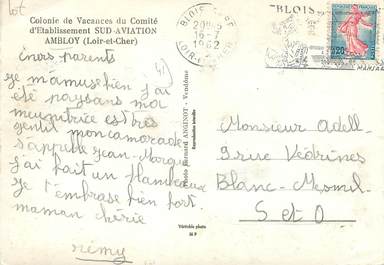 Lot
Colonie de Vacances du Comité
d'Etablissement SUD-AVIATION
AMBLOY (Loir-et-Cher)
chers parents
je m'amuse bien j'ai
été paysans mor
meunitrice est très
gentil mon camarade
s'appelle Jean-Marque
j'ai fait un flambeaux
je t'embrase bien fort.
maman chérie
rémy
41
Photo Bernard ANGINOT - Vendôme
Reproduction interdite
Véritable photo
M P
BLOIS
16-7
1962
LOIR-ET-CHER
BLOIS
0,20
Monsieur Adell
9 rue Védrines
Blanc-Mesnil
S et O